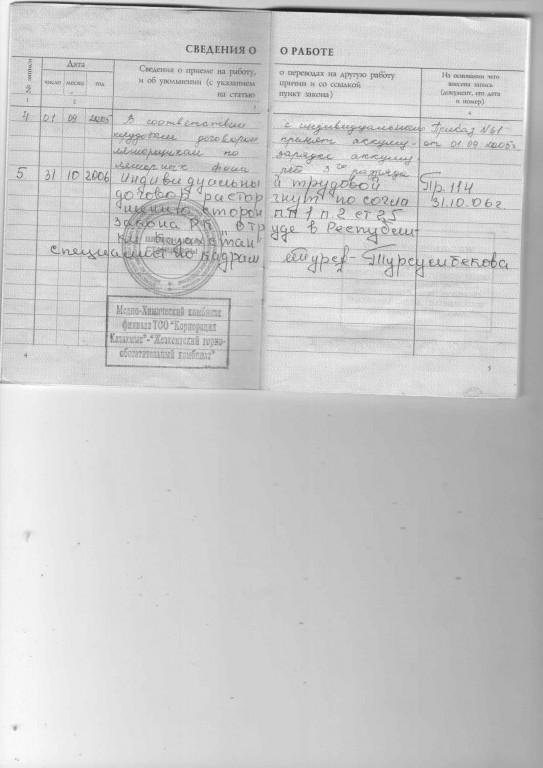 СВЕДЕНИЯ О РАБОТЕ
№ записи
Дата
число месяц год
Сведения о приеме на работу, о переводах на другую работу
и об увольнении (с указанием причин и со ссылкой
на статью пункт закона)
На основании чего
внесена запись
(документ, его дата
и номер)
1 2 3 4
4 01 09 2005 В соответствии с индивидуальным Приказ №61
трудовым договором принят аккуму- от 01.09.2005г.
ляторщиком по зарядке аккуму-
3го разряда
5 31 10 2006 Индивидуальный трудовой Пр. 114
договор расторгнут по согла 31.10.06г.
шению сторон п.п 1 п. 2 ст 25
закона РК "о труде в Республи-
ке Казахстан"
специалист по кадрам Турсумбекова
Медно-Химический комбинат
филиала ТОО "Корпорация
Казахмыс"-"Жезкентский горно-
обогатительный комбинат"
4
5